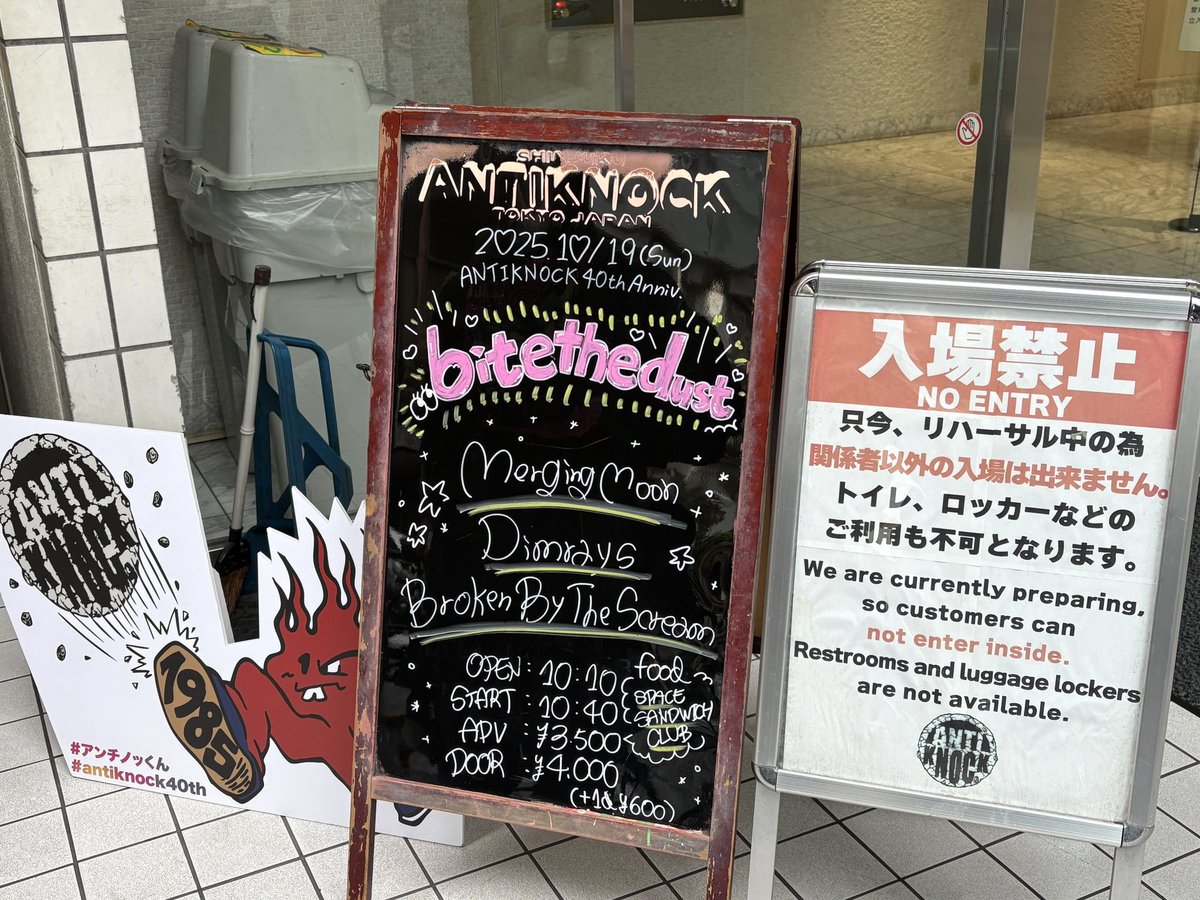 SHINJUKU
ANTIKNOCK
TOKYO JAPAN
2025.10/19(Sun)
ANTIKNOCK 40th Anniv.
bitethedust
Merging Moon
Dimrays
Broken By The Scream
OPEN : 10:10
START : 10:40
ADV : ¥3.500
DOOR : ¥4.000
(+1d ¥600)
food
SPACE
SANDWICH
CLUB
ANTI
KNOCK
1985
#アンチノッくん
#antiknock40th
入場禁止
NO ENTRY
只今、リハーサル中の為
関係者以外の入場は出来ません。
トイレ、ロッカーなどの
ご利用も不可となります。
We are currently preparing,
so customers can
not enter inside.
Restrooms and luggage lockers
are not available.
ANTI
KNOCK